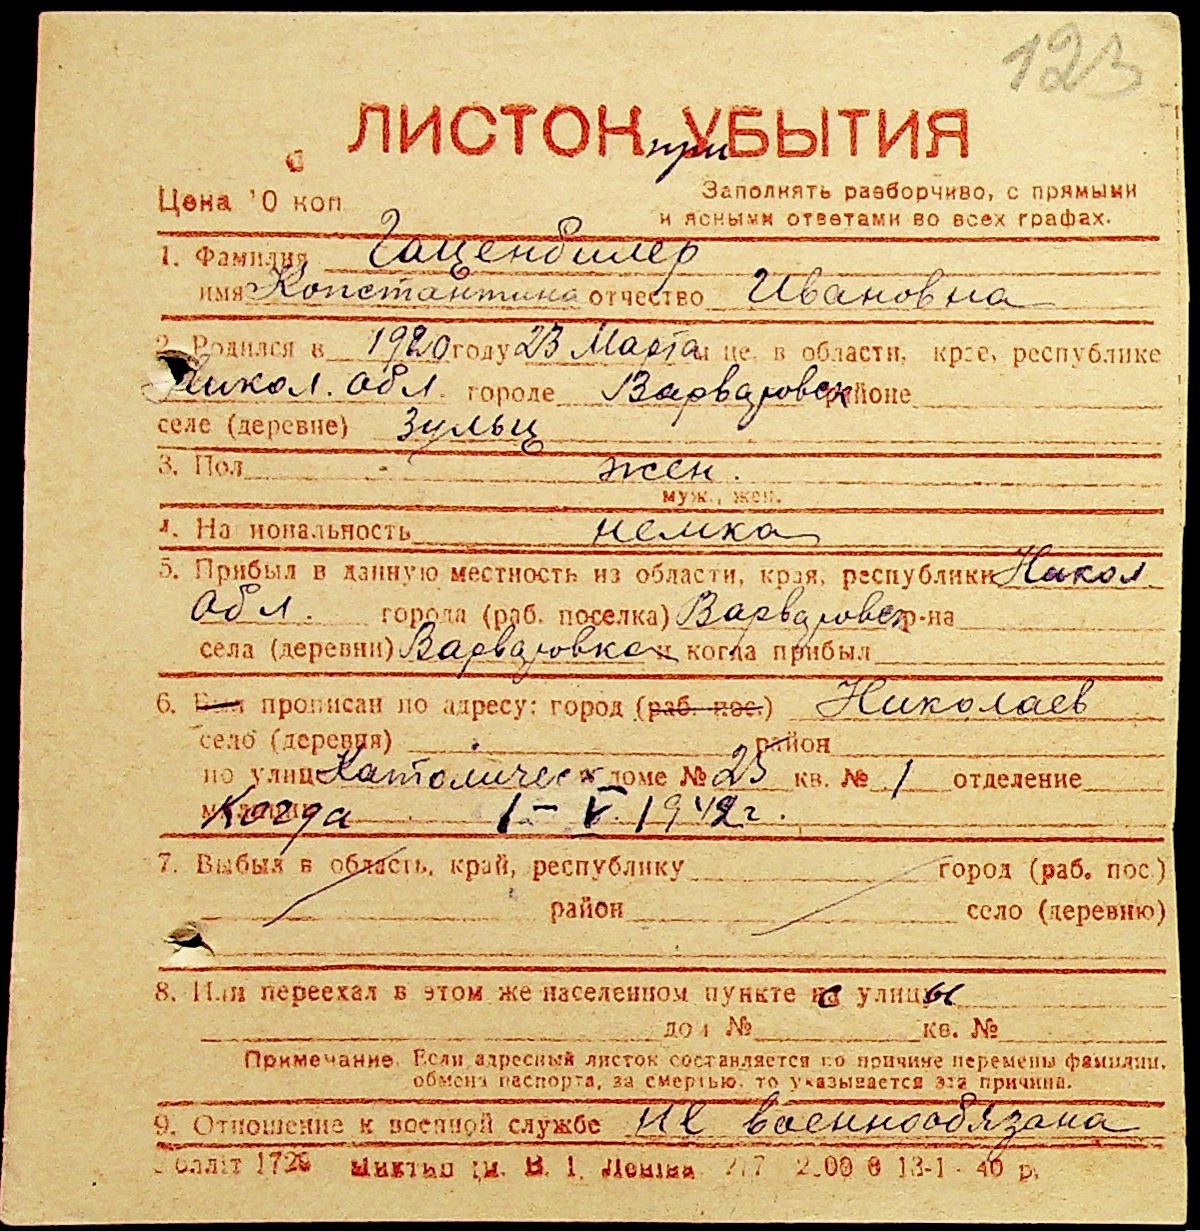 123
ЛИСТОК при УБЫТИЯ
Цена 10 коп
Заполнять разборчиво, с прямыми
и ясными ответами во всех графах.
1. Фамилия Гаценбилер
имя Константина отчество Ивановна
2. Родился в 1920 году 23 Марта м це, в области, крае, республике
Никол. обл. городе Варваровск районе
селе (деревне) Зульц
3. Пол жен.
муж., жен.
4. На иональность немка
5. Прибыл в данную местность из области, края, республики Никол
обл. города (раб. поселка) Варваровск р-на
села (деревни) Варваровка и когда прибыл
6. Был прописан по адресу: город (раб. пос.) Николаев
село (деревня) район
по улиц Католическ доме № 25 кв. № 1 отделение
Когда 1-V 1942 г.
7. Выбыл в область, край, республику город (раб. пос.)
район село (деревню)
8. Или переехал в этом же населенном пункте с улицы
дом № кв. №
Примечание. Если адресный листок составляется по причине перемены фамилии,
обмена паспорта, за смертью, то указывается эта причина.
9. Отношение к военной службе не военнообязана
1940 р.